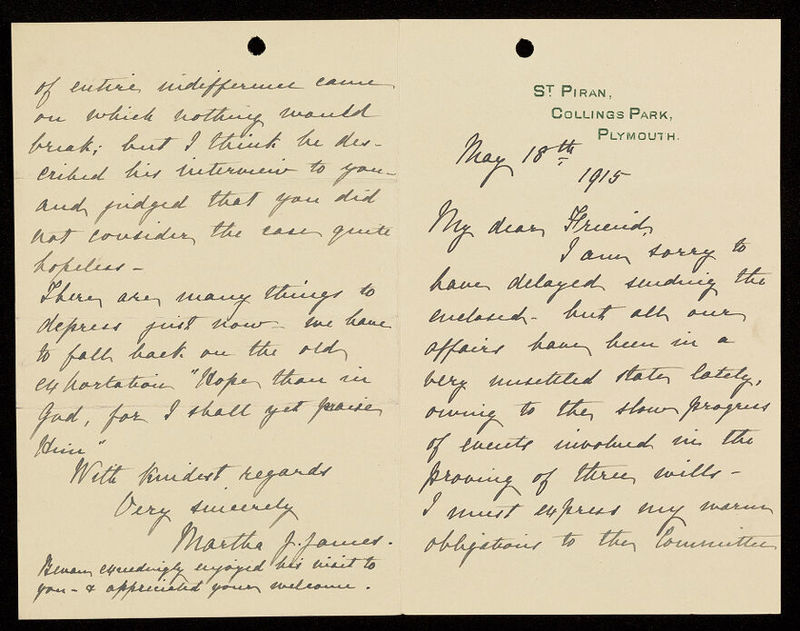 St. PIRAN,
COLLINGS PARK,
PLYMOUTH.
May 18th
1915
My dear Friend,
I am sorry to
have delayed sending the
enclosed - but all our
affairs have been in a
very unsettled state lately,
owing to the slow progress
of events involved in the
proving of three wills -
I must express my warm
obligations to the Committee
of entire indifference came
on which nothing would
break; but I think he des-
cribed his interview to you -
and judged that you did
not consider the case quite
hopeless -
There are many things to
depress just now - we have
to fall back on the old
exhortation "Hope thou in
God, for I shall yet praise
Him"
With kindest regards
Very sincerely
Martha J. James.
Bevan exceedingly enjoyed his visit to
you - & appreciated your welcome.